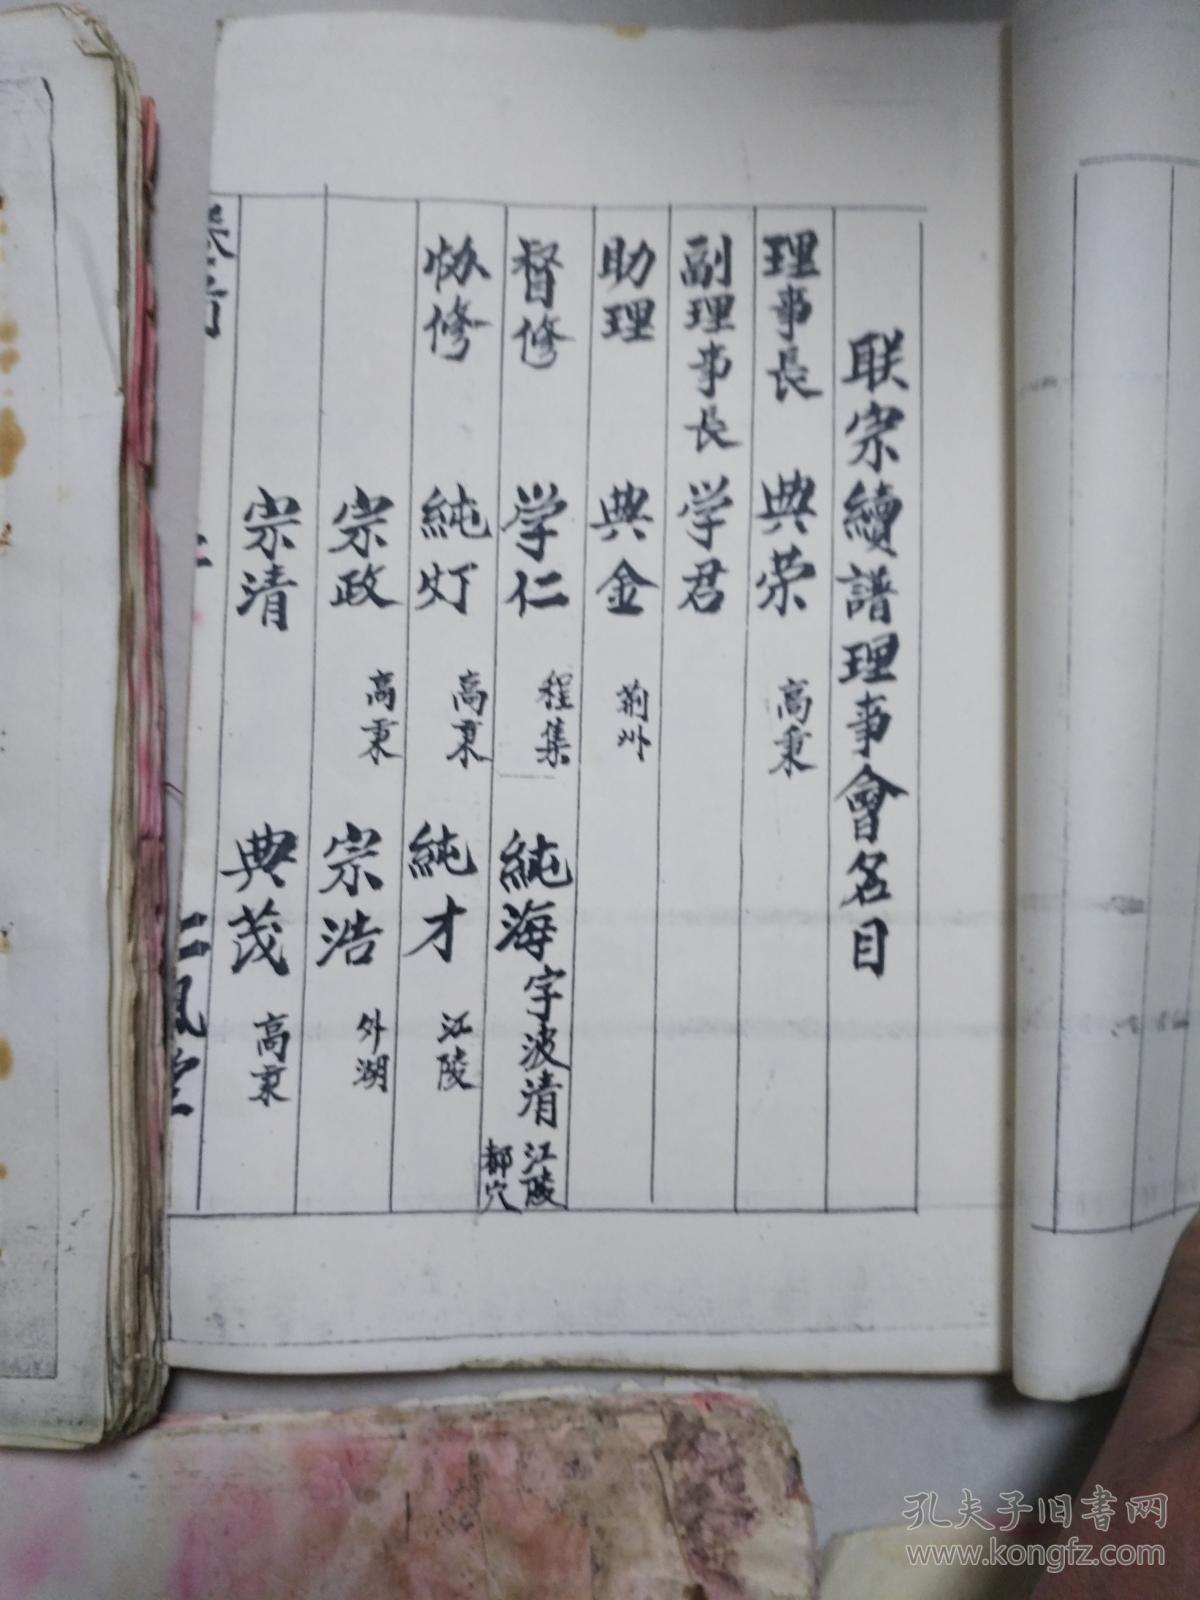 联宗續譜理事會名目
理事長 典荣 高秉
副理事長 学君
助理 典金 荊州
督修 学仁 程集 純海字波清 江陵郝穴
协修 純灯 高秉 純才 江陵
宗政 高秉 宗浩 外湖
宗清 典茂 高秉
卷首
仁風堂
孔夫子旧書网
www.kongfz.com